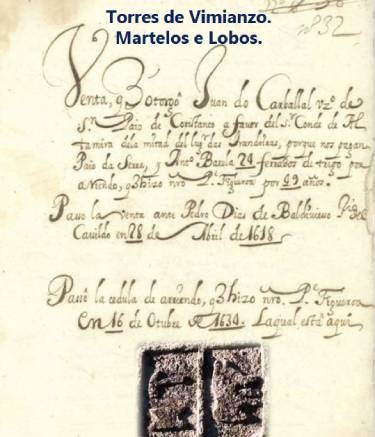 Torres de Vimianzo.
Martelos e Lobos.
nº 32
Venta, q̃ otorgó Juan do Carballal vzº de
sⁿ Paio de Constanco a favor del sʳ Conde de Al
tamira dela mitad del lugʳ das Brandeiras, porque nos pagan
Paio da Sexe, y Anᵗº Baula 24 ferrados de trigo por
arriendo, q̃ hizo nro Pᵉ Figueroa por 99 años.
Pasó la venta ante Pedro Dias de Baldivieso
Cavildo en 28 de Abril de 1618
Pasó la cedula de arriendo, q̃ hizo nro. Pᵉ Figueroa
en 16 de Otubre de 1634. Laqual está aqui